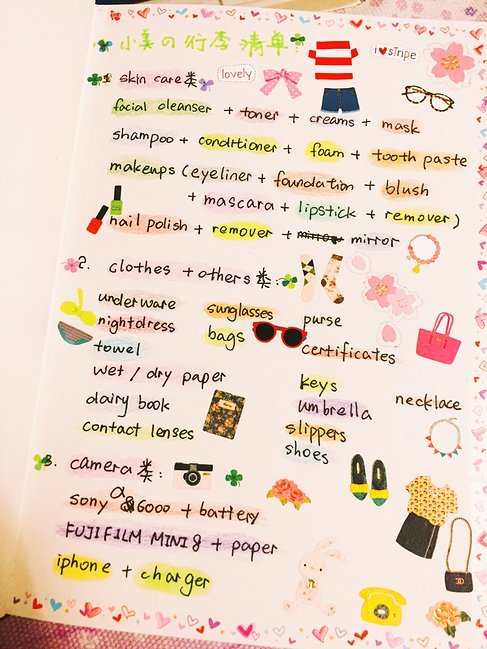 小美の行李清单:
lovely
i ♥ stripe
1 skin care类
facial cleanser + toner + creams + mask
shampoo + conditioner + foam + tooth paste
makeups (eyeliner + foundation + blush
+ mascara + lipstick + remover)
nail polish + remover + mirror mirror
2. clothes + others 类:
underware sunglasses purse
nightdress bags certificates
towel
wet / dry paper keys
dairy book umbrella necklace
contact lenses slippers
shoes
3. camera 类:
sony a6000 + battery
FUJIFILM MINI 8 + paper
iphone + charger